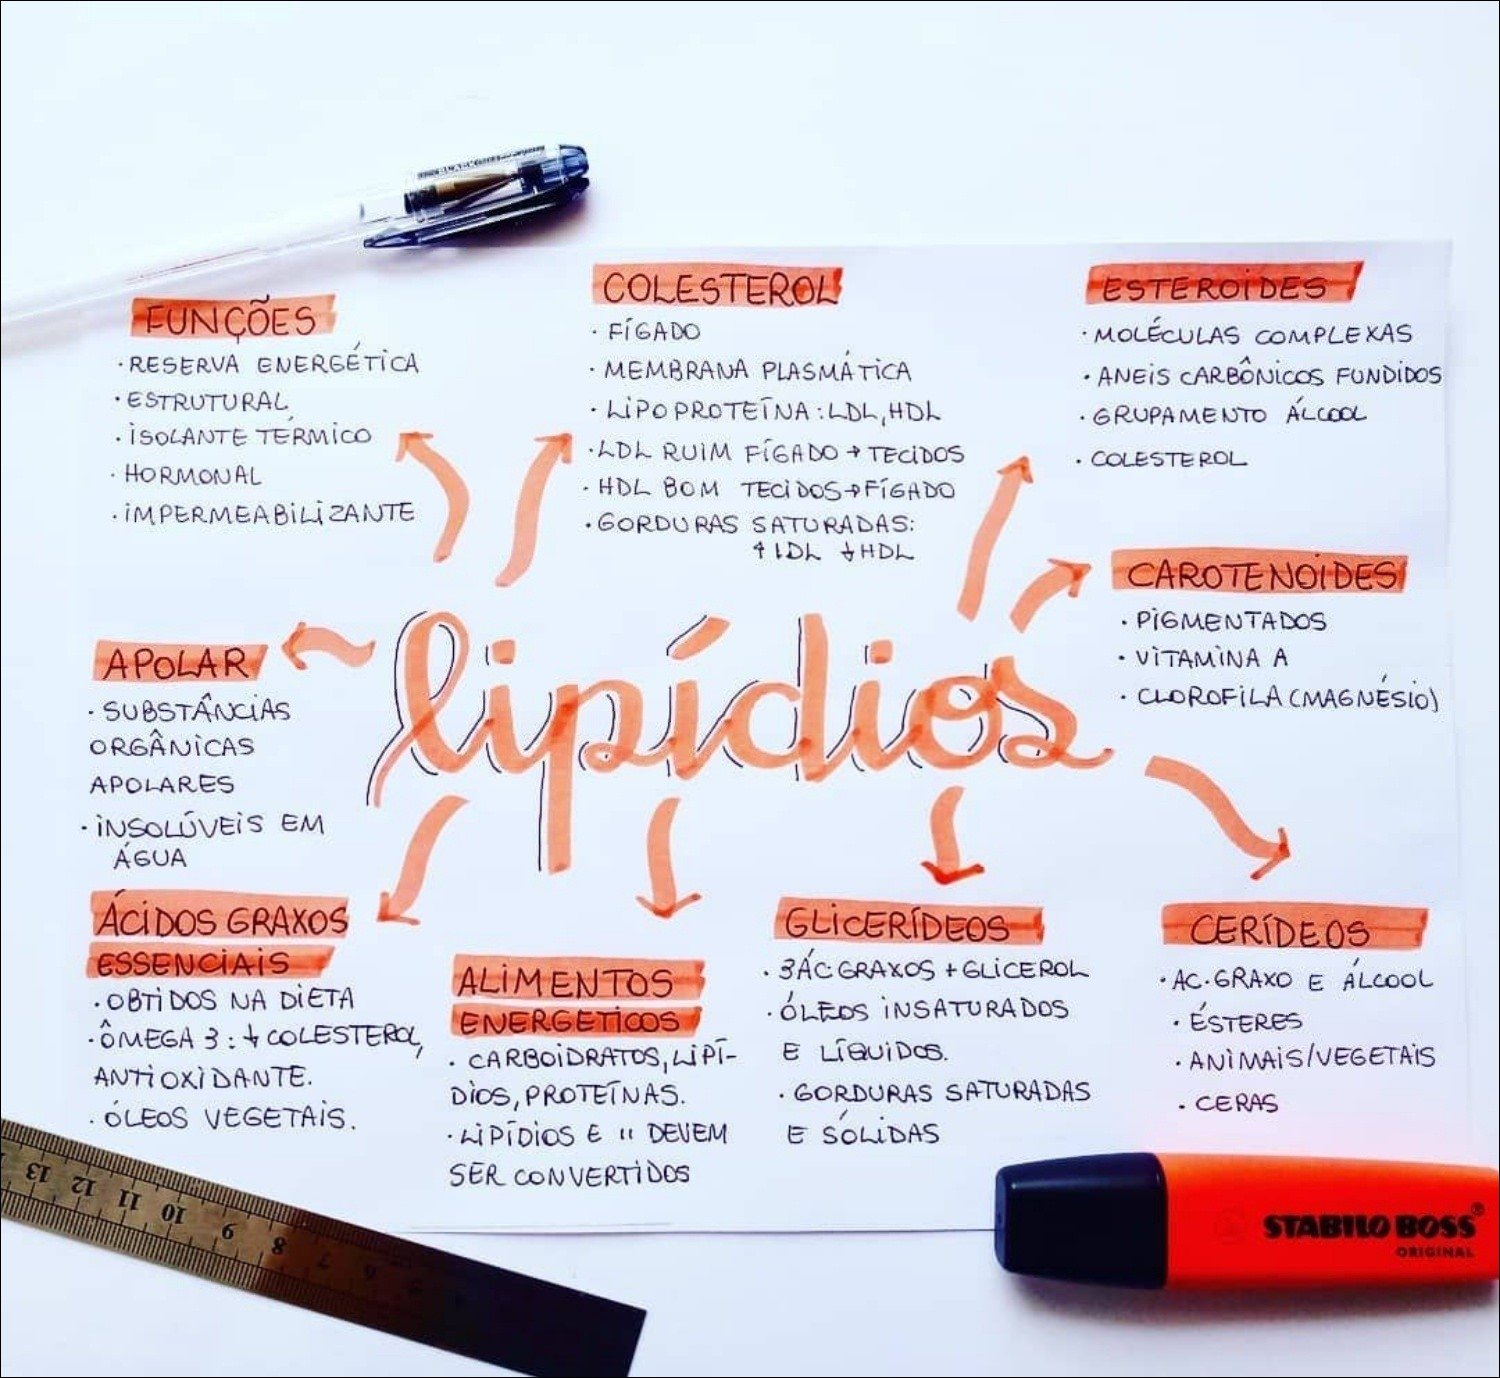 FUNÇÕES
· RESERVA ENERGÉTICA
· ESTRUTURAL
· ISOLANTE TÉRMICO
· HORMONAL
· IMPERMEABILIZANTE
COLESTEROL
· FÍGADO
· MEMBRANA PLASMÁTICA
· LIPOPROTEÍNA: LDL, HDL
· LDL RUIM FÍGADO → TECIDOS
· HDL BOM TECIDOS → FÍGADO
· GORDURAS SATURADAS:
↑ LDL ↓ HDL
ESTEROIDES
· MOLÉCULAS COMPLEXAS
· ANEIS CARBÔNICOS FUNDIDOS
· GRUPAMENTO ÁLCOOL
· COLESTEROL
CAROTENOIDES
· PIGMENTADOS
· VITAMINA A
· CLOROFILA (MAGNÉSIO)
lipídios
APOLAR
· SUBSTÂNCIAS
ORGÂNICAS
APOLARES
· INSOLÚVEIS EM
ÁGUA
ÁCIDOS GRAXOS
ESSENCIAIS
· OBTIDOS NA DIETA
· ÔMEGA 3: ↓ COLESTEROL,
ANTIOXIDANTE.
· ÓLEOS VEGETAIS.
ALIMENTOS
ENERGETICOS
· CARBOIDRATOS, LIPÍ-
DIOS, PROTEÍNAS.
· LIPÍDIOS E " DEVEM
SER CONVERTIDOS
GLICERÍDEOS
· 3 ÁC GRAXOS + GLICEROL
· ÓLEOS INSATURADOS
E LÍQUIDOS.
· GORDURAS SATURADAS
E SÓLIDAS
CERÍDEOS
· AC. GRAXO E ÁLCOOL
· ÉSTERES
· ANIMAIS/VEGETAIS
· CERAS
13 12 11 10 9 8 7 6
STABILO BOSS®
ORIGINAL